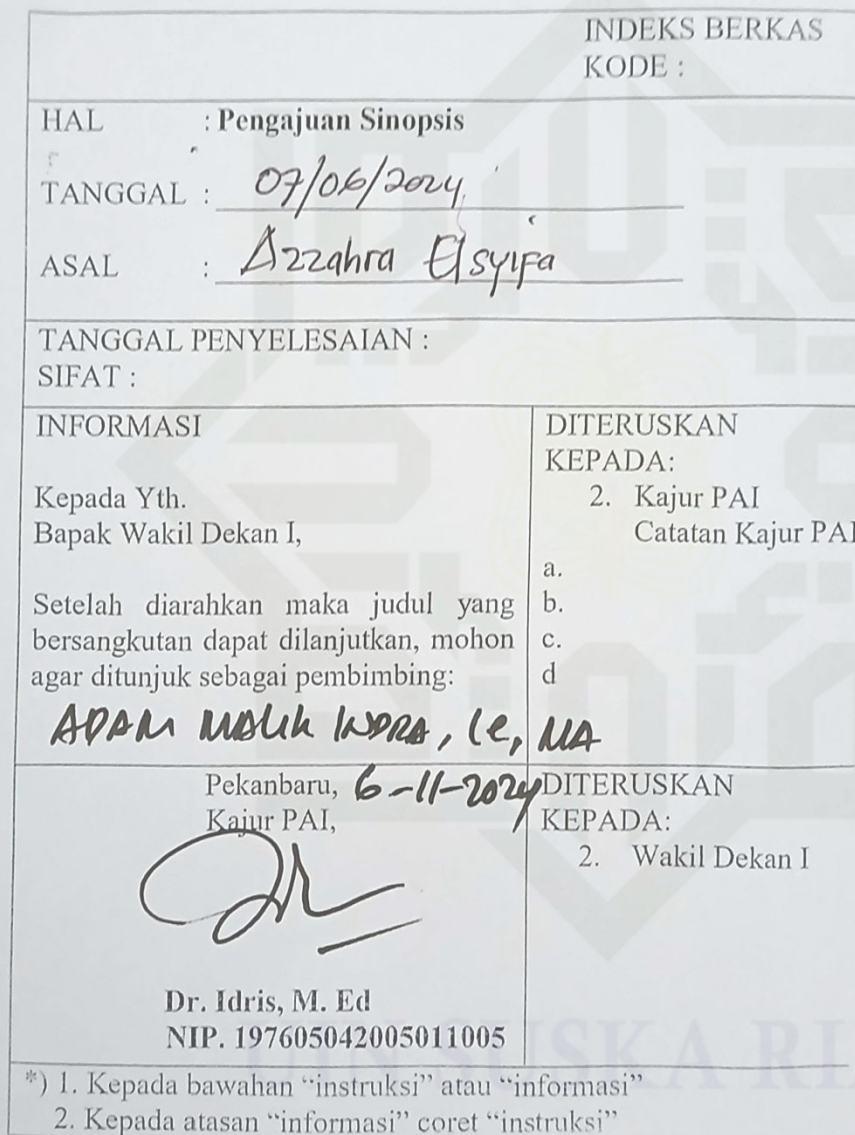 INDEKS BERKAS
KODE :
HAL : Pengajuan Sinopsis
TANGGAL : 07/06/2024
ASAL : Azzahra Elsyifa
TANGGAL PENYELESAIAN :
SIFAT :
INFORMASI
Kepada Yth.
Bapak Wakil Dekan I,
Setelah diarahkan maka judul yang
bersangkutan dapat dilanjutkan, mohon
agar ditunjuk sebagai pembimbing:
ADAM MALIK INDRA, MA
DITERUSKAN
KEPADA:
2. Kajur PAI
Catatan Kajur PAI
a.
b.
c.
d
Pekanbaru, 6-11-2024
Kajur PAI,
Dr. Idris, M. Ed
NIP. 197605042005011005
DITERUSKAN
KEPADA:
2. Wakil Dekan I
*) 1. Kepada bawahan “instruksi” atau “informasi”
2. Kepada atasan “informasi” coret “instruksi”
UIN SUSKA RI